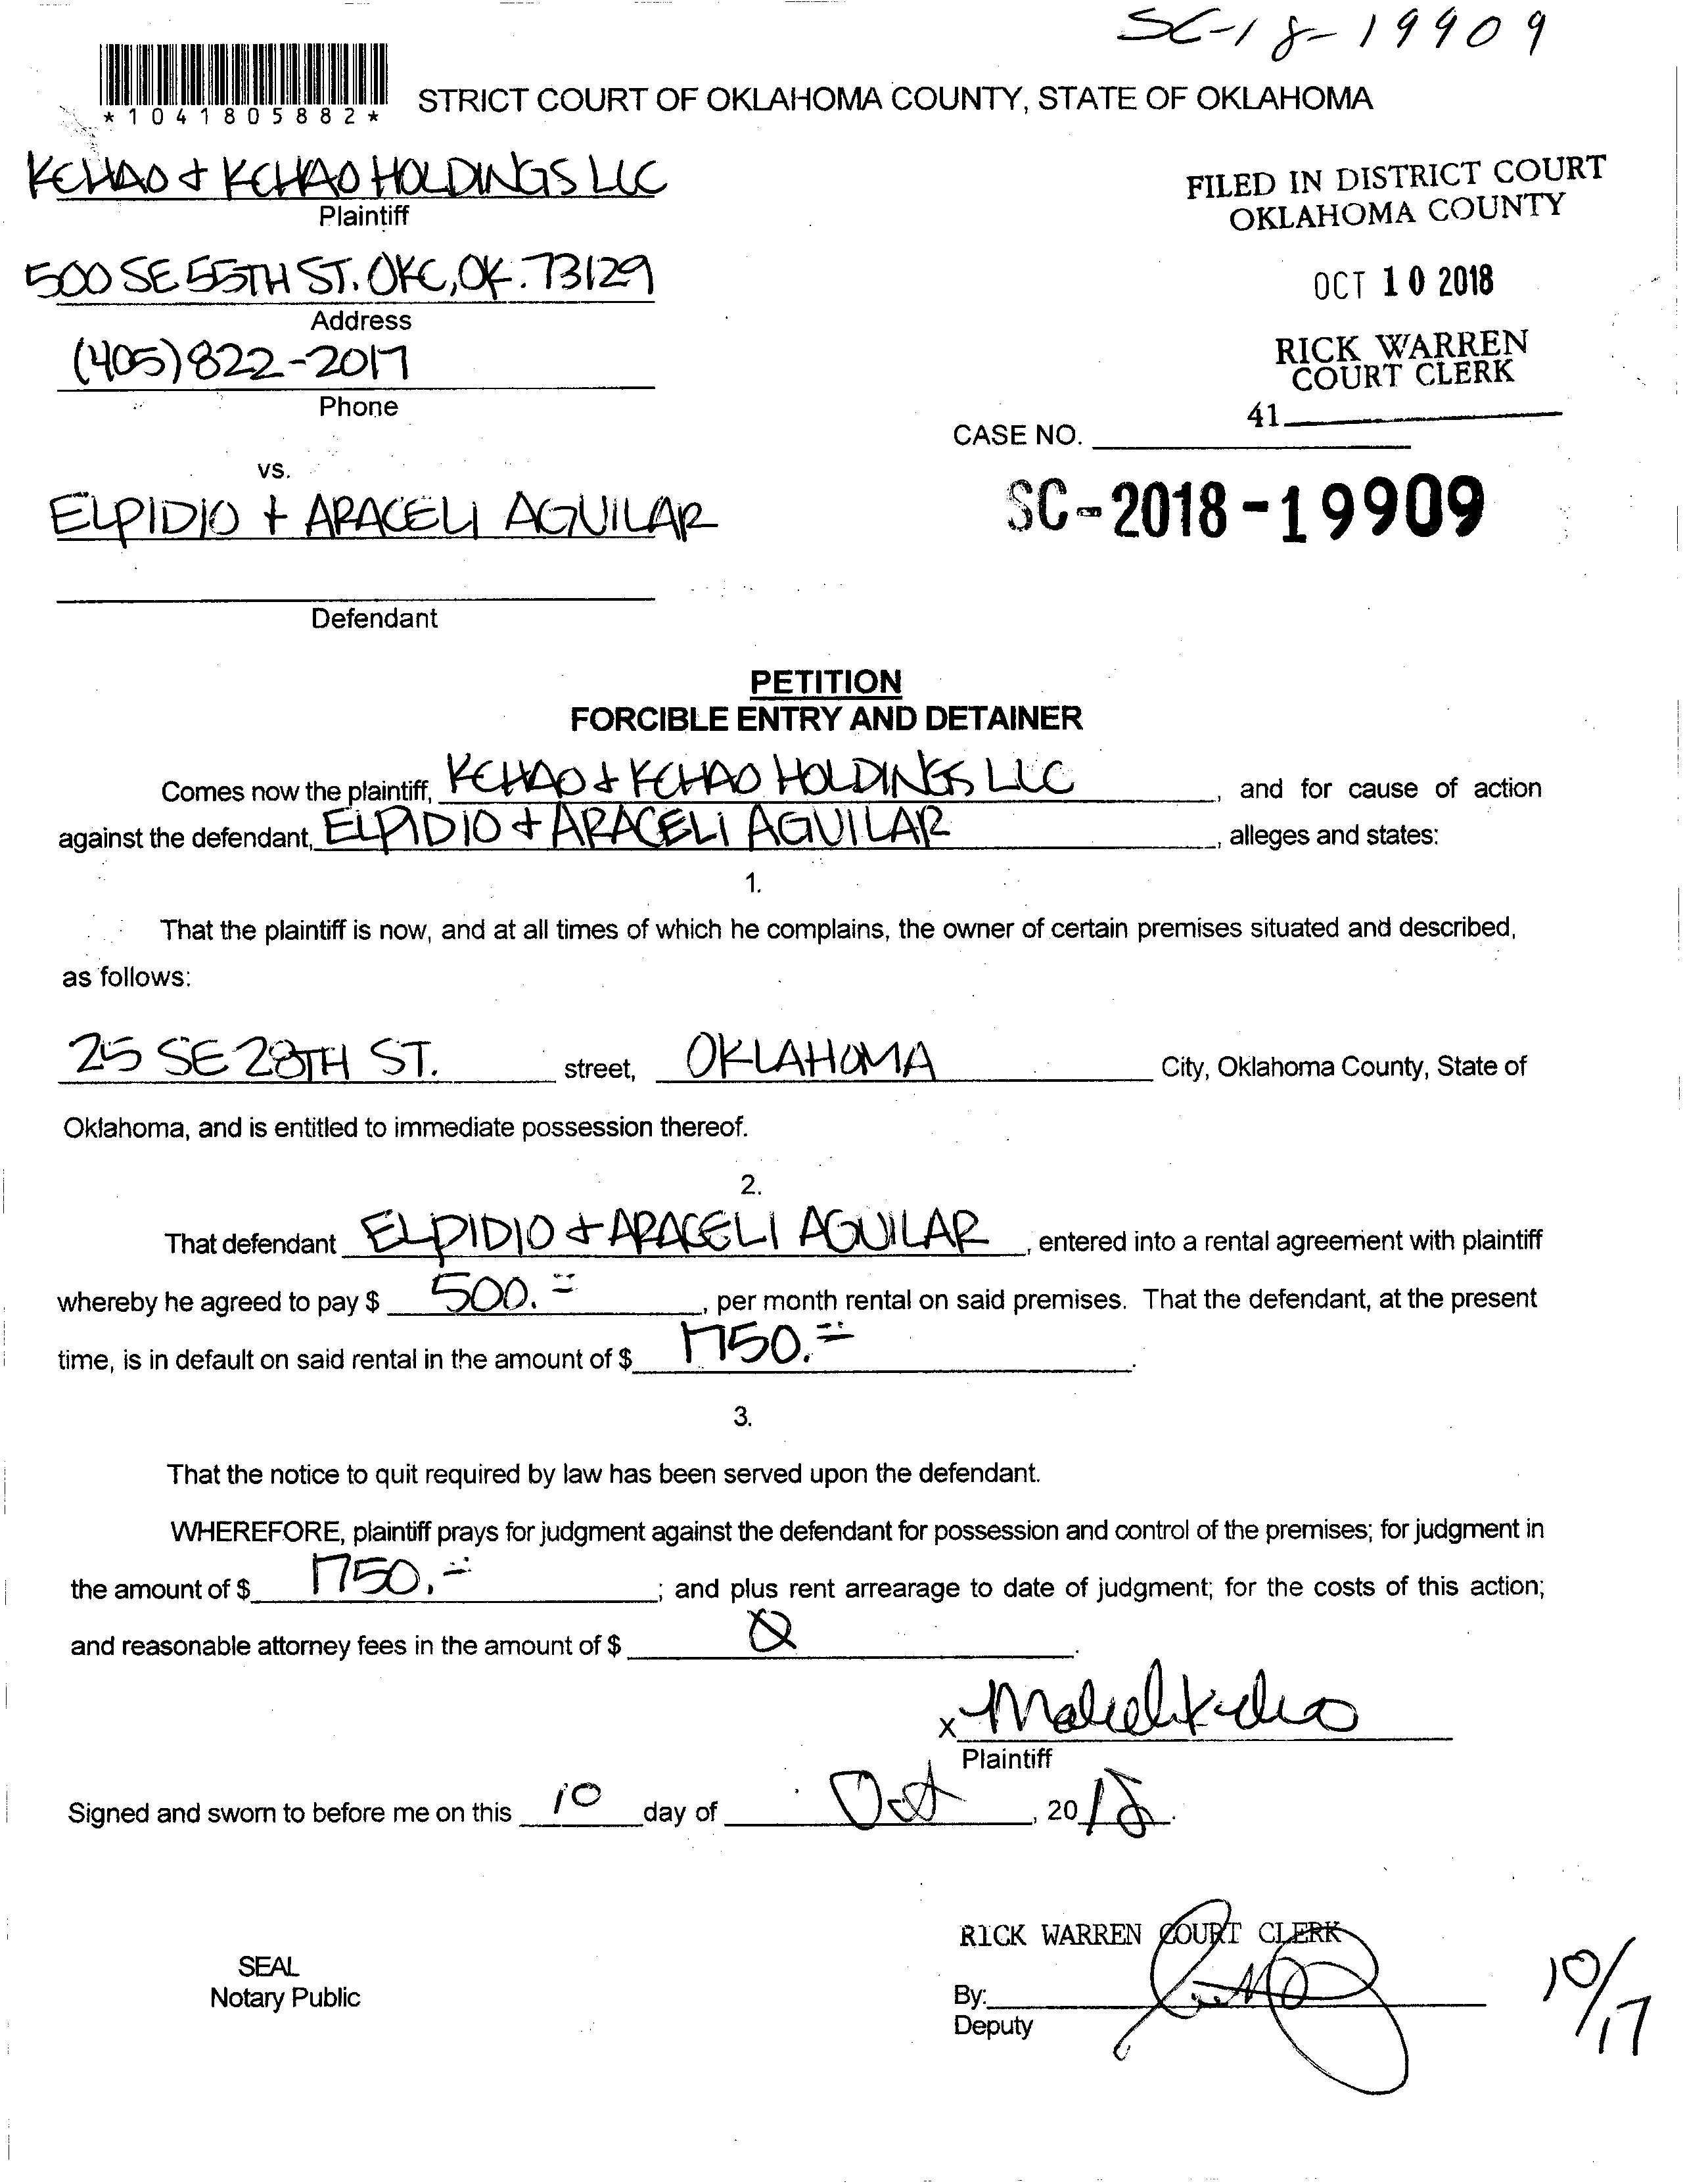 SC-18-19909
*1041805882*
STRICT COURT OF OKLAHOMA COUNTY, STATE OF OKLAHOMA
KCHAO & KCHAO HOLDINGS LLC
Plaintiff
FILED IN DISTRICT COURT
OKLAHOMA COUNTY
500 SE 55TH ST. OKC, OK. 73129
Address
OCT 10 2018
(405) 822-2017
Phone
RICK WARREN
COURT CLERK
41
CASE NO.
vs.
SC-2018-19909
ELPIDIO & ARACELI AGUILAR
Defendant
PETITION
FORCIBLE ENTRY AND DETAINER
Comes now the plaintiff, KCHAO & KCHAO HOLDINGS LLC, and for cause of action
against the defendant, ELPIDIO & ARACELI AGUILAR, alleges and states:
1.
That the plaintiff is now, and at all times of which he complains, the owner of certain premises situated and described,
as follows:
25 SE 28TH ST. street, OKLAHOMA City, Oklahoma County, State of
Oklahoma, and is entitled to immediate possession thereof.
2.
That defendant ELPIDIO & ARACELI AGUILAR, entered into a rental agreement with plaintiff
whereby he agreed to pay $ 500.=, per month rental on said premises. That the defendant, at the present
time, is in default on said rental in the amount of $ 1750.=.
3.
That the notice to quit required by law has been served upon the defendant.
WHEREFORE, plaintiff prays for judgment against the defendant for possession and control of the premises; for judgment in
the amount of $ 1750.=; and plus rent arrearage to date of judgment; for the costs of this action;
and reasonable attorney fees in the amount of $ 0.
x
Plaintiff
Signed and sworn to before me on this 10 day of Oct, 2018.
RICK WARREN COURT CLERK
SEAL
Notary Public
By:
Deputy
10/17